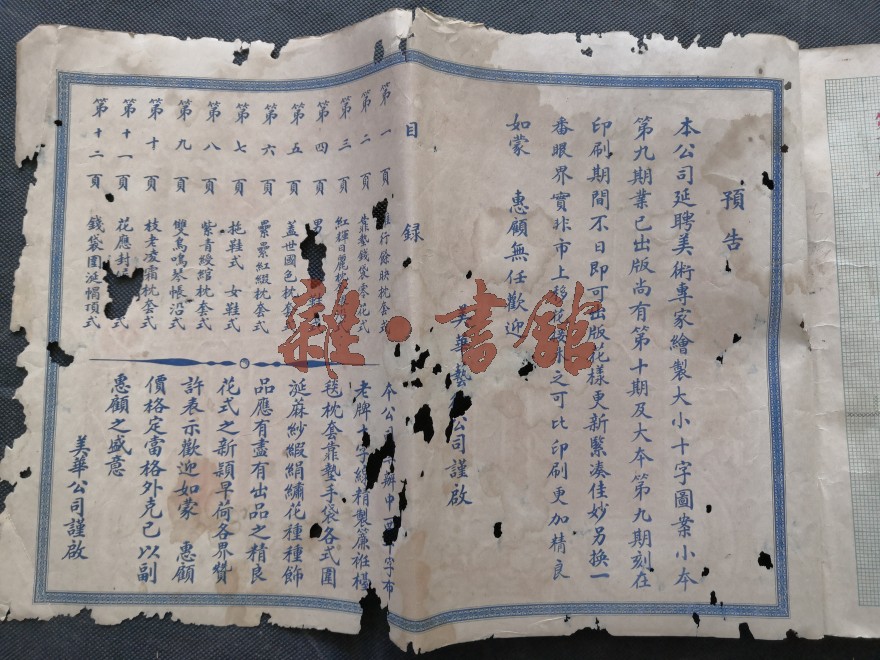 預告
本公司延聘美術專家繪製大小十字圖案小本
第九期業已出版尚有第十期及大本第九期刻在
印刷期間不日即可出版花樣更新緊湊佳妙另換一
番眼界實非市上之可比印刷更加精良
如蒙 惠顧無任歡迎
美華藝公司謹啟
目錄
第一頁 行餘映枕套式
第二頁 靠墊錢袋零花式
第三頁 紅輝日麗枕式
第四頁 男式
第五頁 蓋世國色枕套式
第六頁 纍纍紅綴枕套式
第七頁 拖鞋式 女鞋式
第八頁 紫青綬綰枕套式
第九頁 雙鳥鳴琴帳沿式
第十頁 枝老凌霜枕套式
第十一頁 花應封式
第十二頁 錢袋圍涎帽項式
本公司辦中十字布
老牌十字線精製簾袵檯
毯枕套靠墊手袋各式圍
涎麻紗緞絹繡花種種飾
品應有盡有出品之精良
花式之新穎早荷各界贊
許表示歡迎如蒙 惠顧
價格定當格外克己以副
惠顧之盛意
美華公司謹啟
雜·書館